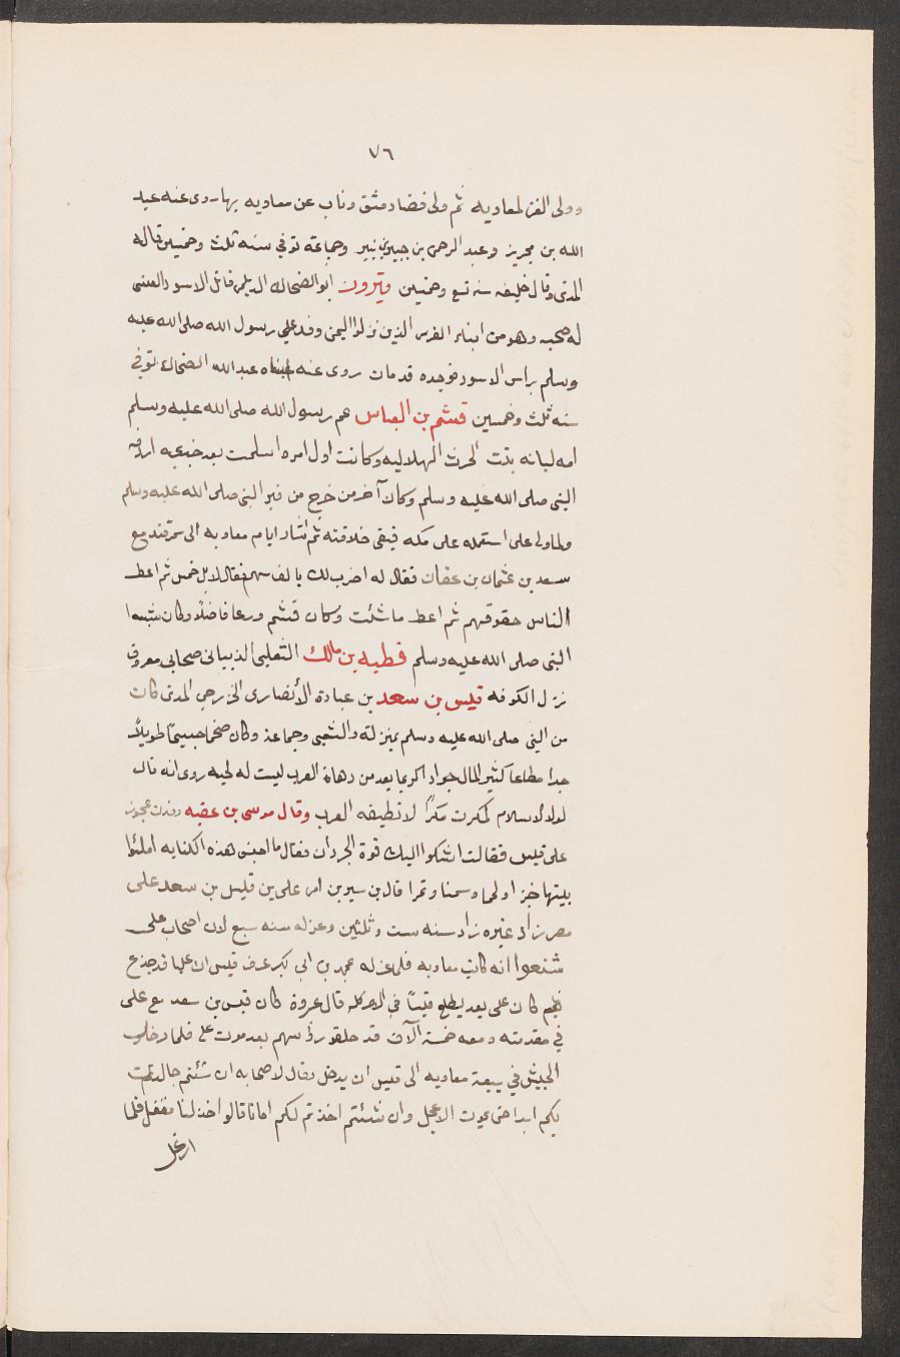 ٧٦
وولى الغزو لمعاويه ثم ولى قضا دمشق وناب عن معاويه بها روى عنه عبد
الله بن محيريز وعبد الرحمن بن جبير بن نفير وجماعة توفي سنه ثلث وخمسين قاله
المدنى وقال خليفه سنه تسع وخمسين وفيروز ابو الضحاك الديلمي قاتل الاسود العنسى
له صحبه وهو من ابناء الفرس الذين نزلوا اليمن وفد على رسول الله صلى الله عليه
وسلم براس الاسود فوجده قد مات روى عنه ابناه عبد الله الضحاك توفي
سنه ثلث وخمسين قشم بن العباس عم رسول الله صلى الله عليه وسلم
امه لبابه بنت الحرث الهلاليه وكانت اول امره اسلمت بعد خديجه اردفه
النبى صلى الله عليه وسلم وكان آخر من خرج من قبر النبى صلى الله عليه وسلم
ولما ولى على استعمله على مكه فبقى خلافته ثم سار ايام معاويه الى سمرقند مع
سعد بن عثمان بن عفان فقال له اضرب لك بالف سهم فقال لا بل خمس ثم اعط
الناس حقوقهم ثم اعط ما شئت وكان قشم ورعا فاضلا وكان يشبه
النبى صلى الله عليه وسلم قطبه بن مالك الثعلبى الذبيانى صحابى معروف
نزل الكوفه قيس بن سعد بن عبادة الأنصارى الخزرجى المدنى كان
من النبى صلى الله عليه وسلم بمنزله والشعبى وجماعة وكان ضخما جسيمًا طويلاً
جدا مطاعا كثير المال جوادا كريما يعد من دهاة العرب ليست له لحيه روى انه قال
لولا الاسلام لمكرت مكرًا لا تطيقه العرب وقال موسى بن عقبه وقفت عجوز
على قيس فقالت اشكوا اليك قوة الجردان فقال ما احسن هذه الكنايه املئوا
بيتها خبزا ولحما وسمنا وتمرا قال بن سيرين امر على بن قيس بن سعد على
مصر زاد غيره زاد سنه ست وثلثين وعزله سنه سبع لان اصحاب على
شنعوا انه كاتب معاويه فلما عزله محمد بن ابى بكر عرف قيس ان عليا قد خدع
فيهم كان على بعد يطلع قيسًا في الامر كله قال عروة كان قيس بن سعد مع على
في مقدمته ومعه خمسة الآف قد حلقو رؤسهم بعد موت على فلما دخلت
الجيش في بيعة معاويه الى قيس ان يدخل وقال لاصحابه ان شئتم جالدت
بكم ابدا حتى يموت الاعجل وان شئتم اخذتم لكم امانا قالوا اخذ لنا ففعل فلما
ارتحل